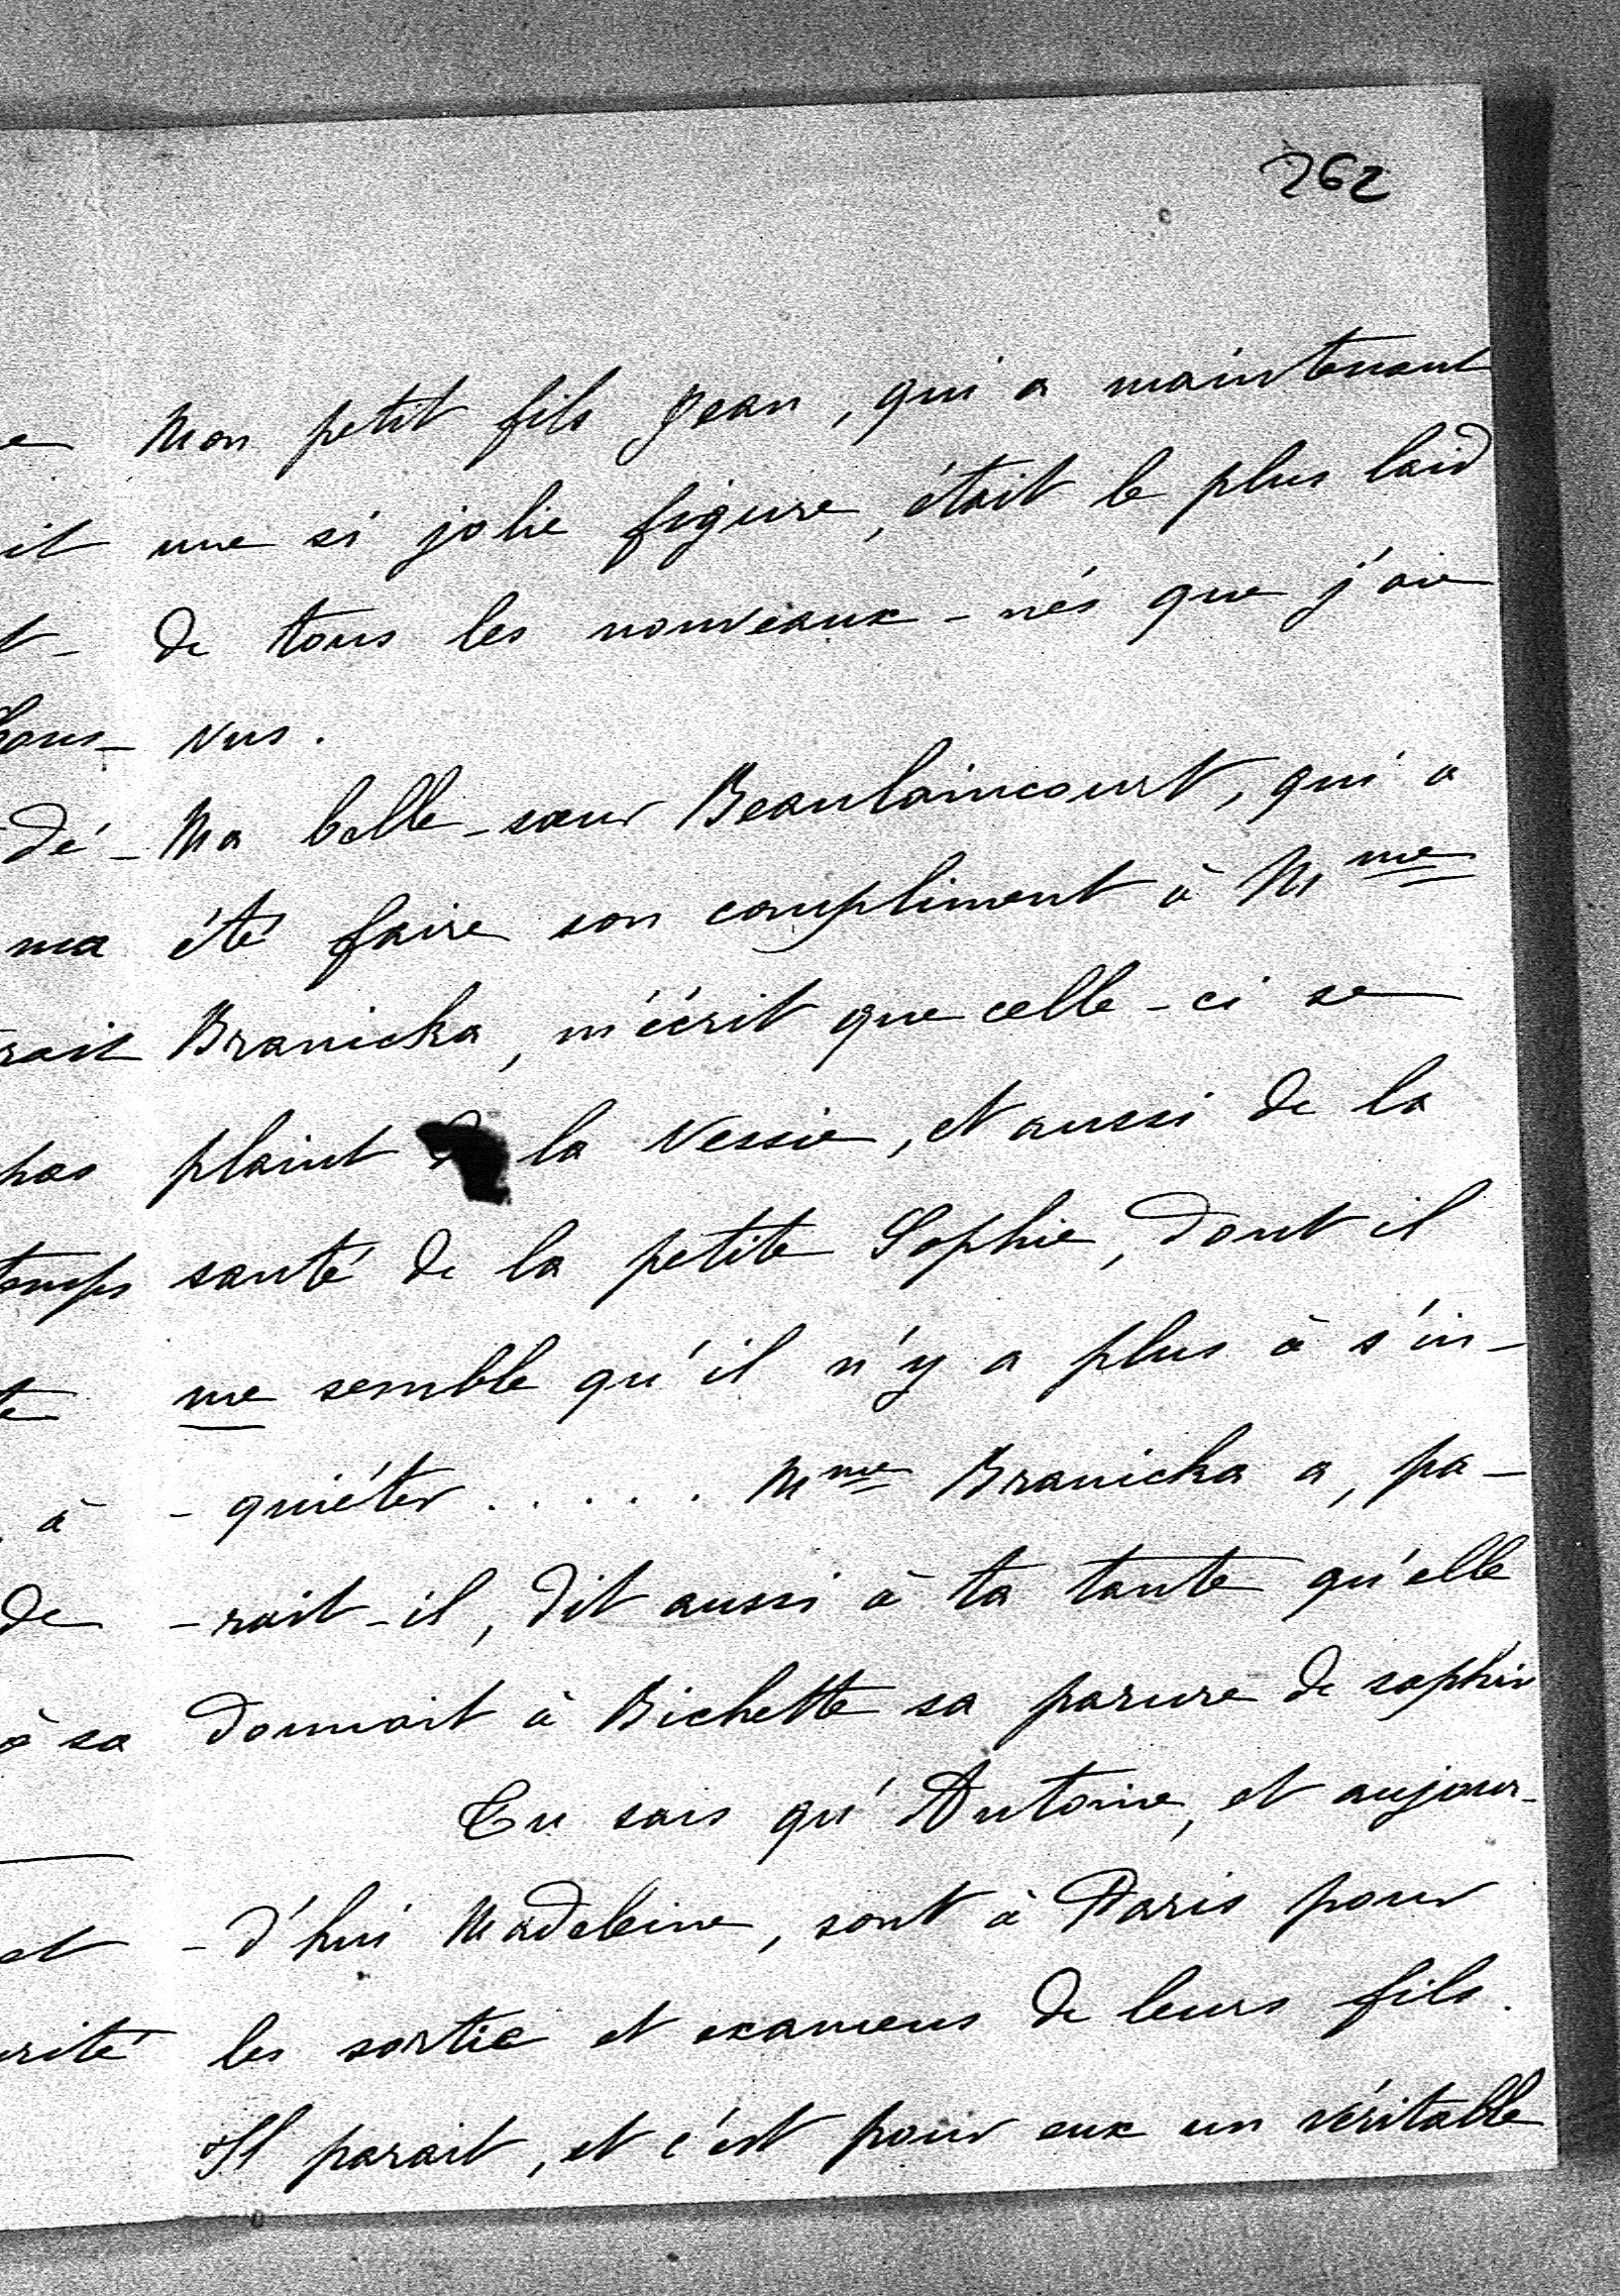 262
Mon petit fils Jean, qui a maintenant
une si jolie figure, était le plus laid
de tous les nouveaux-nés que j'aie
vus.
Ma belle-sœur Beaulaincourt, qui a
été faire son compliment à Mme
Branicka, m'écrit que celle-ci se
plaint de la vessie, et aussi de la
santé de la petite Sophie, dont il
me semble qu'il n'y a plus à s'in-
-quiéter...... Mme Branicka a, pa-
-rait-il, dit aussi à ta tante qu'elle
donnait à Bichette sa parure de saphir
Tu sais qu'Antoine, et aujour-
-d'hui Madeleine, sont à Paris pour
les sortie et examens de leurs fils.
Il parait, et c'est pour eux un véritable